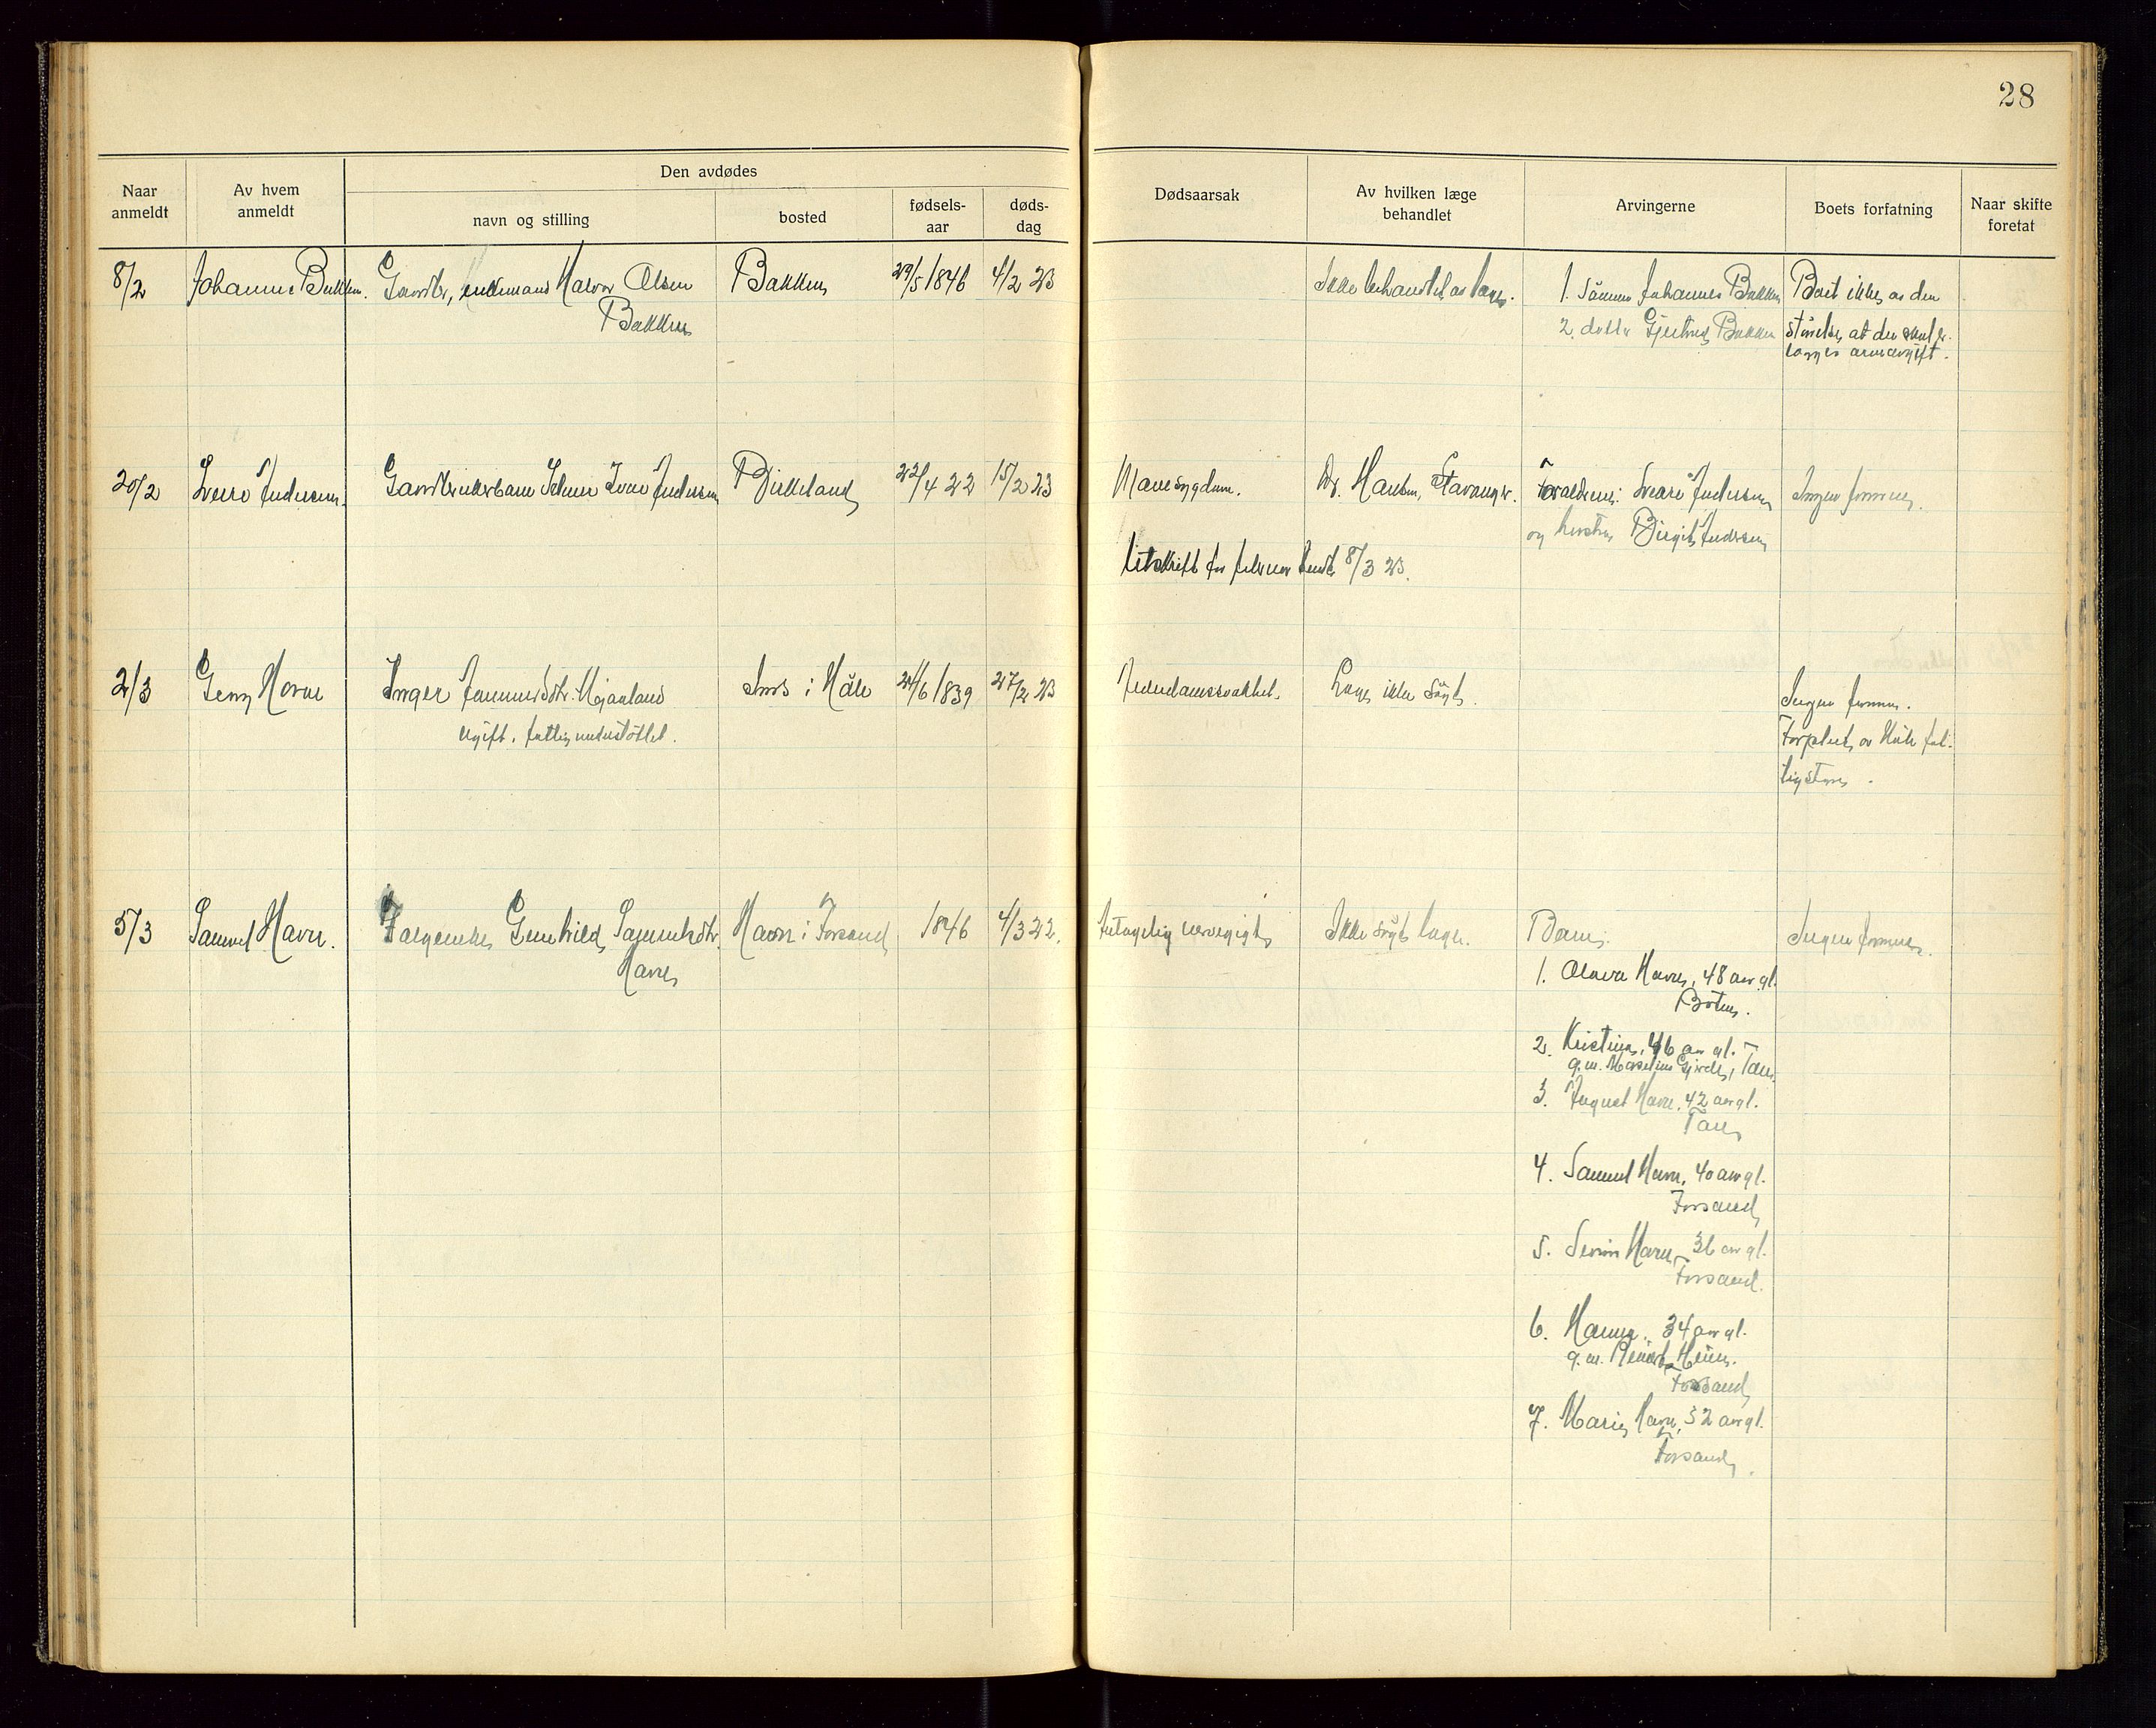 28
Naar anmeldt
Av hvem anmeldt
Den avdødes
navn og stilling
bosted
fødsels-aar
døds-dag
Dødsaarsak
Av hvilken læge behandlet
Arvingerne
Boets forfatning
Naar skifte foretat
8/2
Johannes Bakken.
Gaardbr, enkemand Halvor Olsen
Bakken
Bakken
29/5 1846
4/2 23
Ikke behandlet av læge.
1. sönnen Johannes Bakken
2. datter Gjertrud Bakken
Boet ikke av den
störelse, at der skal er-
lægges arveavgift.
20/2
Sverre Andersen.
Andersen
Birkeland
22/4 22
15/2 23
Mavesygdom.
Dr. Hansen, Stavanger.
Forældrene: Sverre Andersen
og hustru Birgit Andersen
Ingen formue.
Utskrift for sendt 8/3 23.
2/3
Horne
Inger
ugift, fattigunderstöttet.
i Höle
24/6 1839
27/2 23
Alderdomssvakhet.
Læge ikke sögt.
Ingen formue.
Forpleiet av Höle fat-
tigstyre.
5/3
Samuel Havn.
Gunhild Samuelsdtr.
Havn
Havn i Forsand
1846
4/3 22.
Ikke sögt læge.
Barn:
1. Olava Havn, 48 aar gl.
2. Kristina, 46 aar gl.
g.m. Tau.
3. August Havn, 42 aar gl.
Tau
4. Samuel Havn, 40 aar gl.
Forsand
5. Havn, 36 aar gl.
Forsand.
6. Hanna, 34 aar gl.
g.m.
Forsand
7. Marie Havn, 32 aar gl.
Forsand.
Ingen formue.